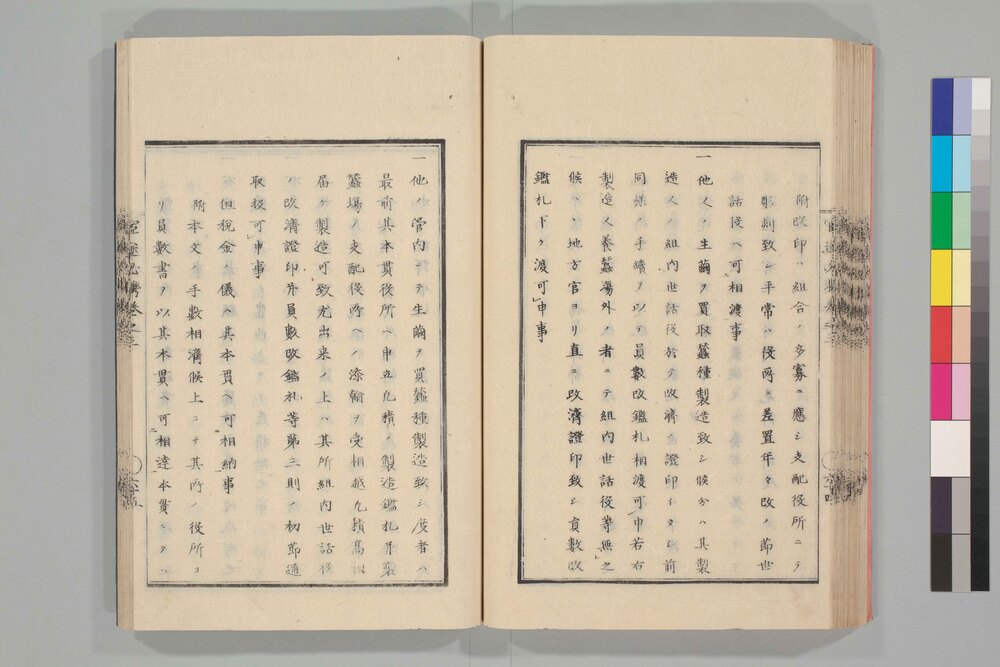 附改印ハ組合ノ多寡ニ應シ支配役所ニテ
彫刻致シ平常ハ役所ニ差置年々改ノ節世
話役ヘ可相渡事
一他人ノ生繭ヲ買取蠶種製造致シ候分ハ其製
造人ノ組内世話役於テ改濟ノ證印イタシ前
同樣ノ手續ヲ以テ員數改鑑札相渡可申若右
製造人養蠶場外ノ者ニテ組内世話役等無之
候ハヽ地方官ヨリ直ニ改濟證印致シ員數改
鑑札下ケ渡可申事
一他ノ管内ニテ生繭ヲ買蠶種製造致シ度者ハ
最前其本貫役所ヘ申立凡積ノ製造鑑札并製
蠶場ノ支配役所ヘ添翰ヲ受相越凡積高相
届ケ製造可致尤出来ノ上ハ其所組内世話役
ハ改濟證印并員數改鑑札等第三則初節通
取扱可申事
不但税金ノ儀ハ其本貫ヘ可相納事
附本文ノ手數相濟候上ニテ其所ノ役所ヨ
リ員數書ヲ以其本貫ヘ可相達本貫ニテハ